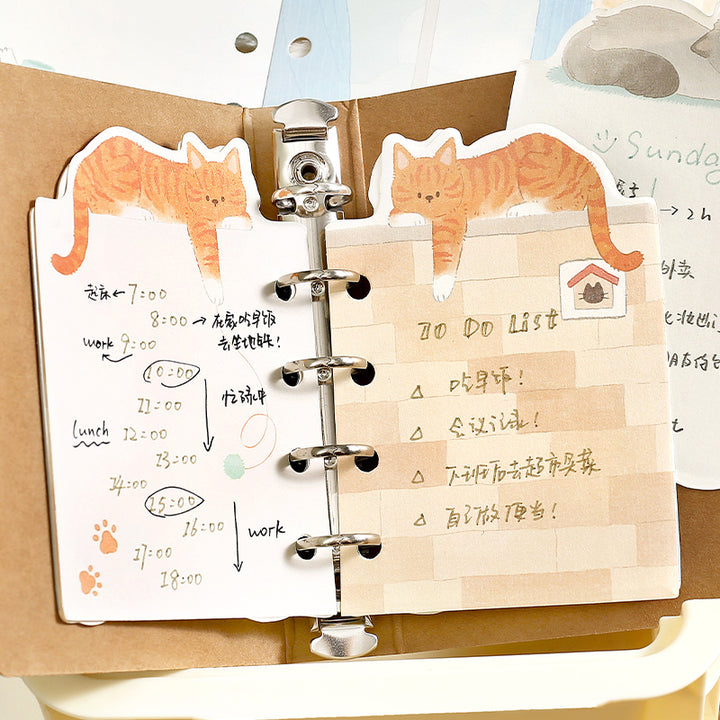 起床←7:00
8:00→在家吃早饭
去坐地铁!
work 9:00
10:00
忙碌中
11:00
lunch 12:00
13:00
14:00
15:00
16:00
work
17:00
18:00
To Do List
△ 吃早饭!
△ 会议记录!
△ 下班后去超市买菜
△ 自己做便当!
Sunday
→2h
外卖